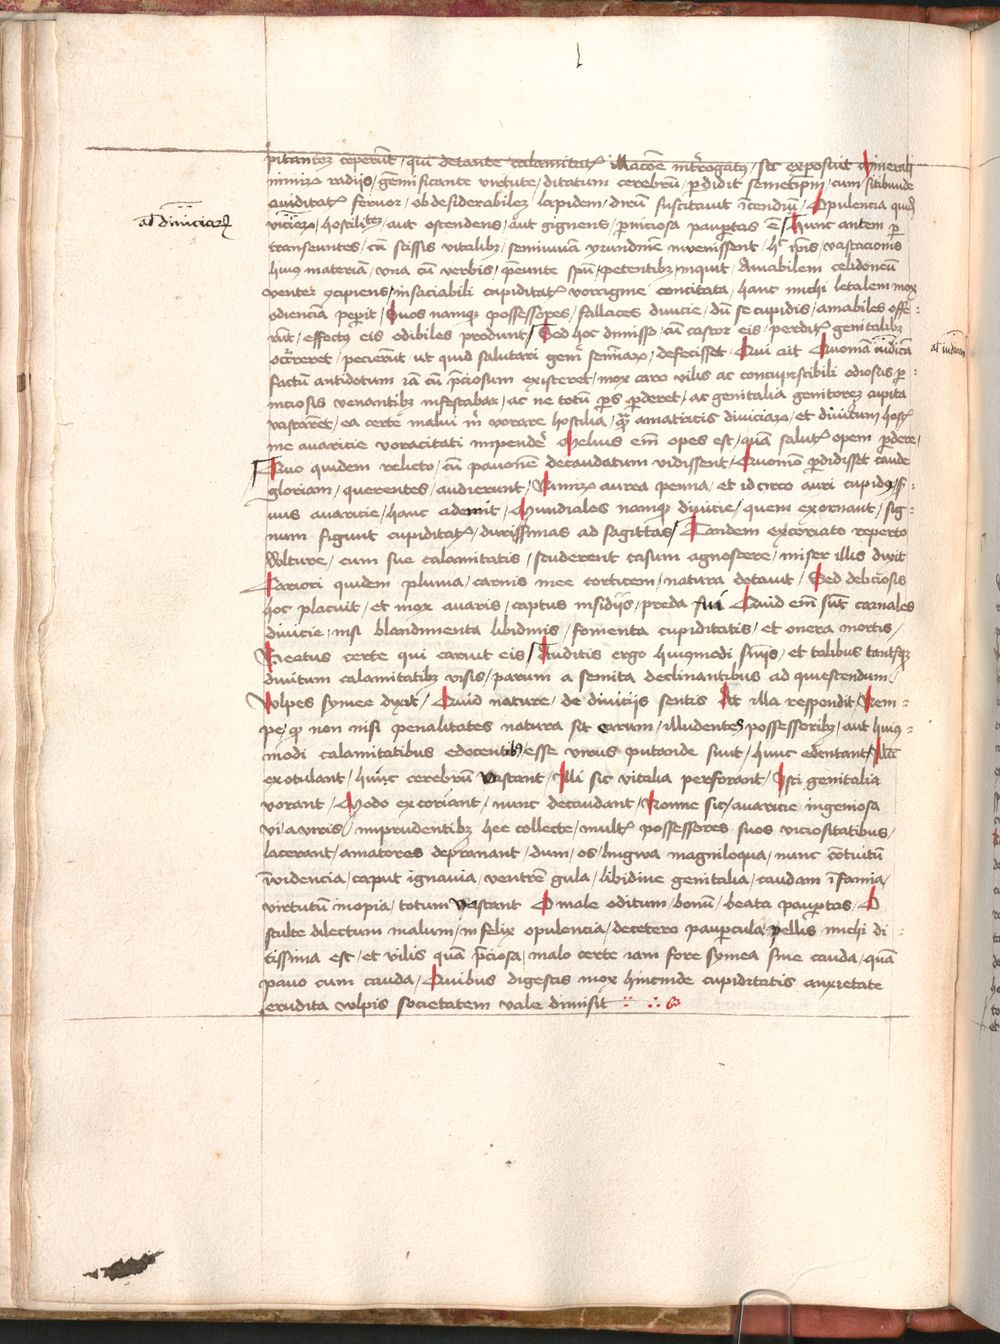 pitantez ceperūt / qui de tante calamitatꝭ illacōe intr̄rogatꝯ / sic exposuit Minerali
nimirꝝ radijs / gēmificante virtute / ditatum cerebrū / ꝑdidit semetip̄m / cum sitibunde
auiditatꝭ feruor / ob desiderabilez lapidem / dirū suscitauit īcendiū / Opulencia
viciora / hostilitez / aut ostendens / aut gignens / ꝑniciosa pauꝑtas ē / Hunc autem ꝑ
al diuiciarꝝ
transeuntes / cū scissis vitalibꝫ / semiuiuā yrundinē inuenissent / vastacionis
huius materiā / vna cū verbis / p̄eunte spū / petentibꝫ / inquit / Amabilem celidoneū
venter ꝯcipiens / insaciabili cupiditatꝭ voragine concitata / hanc michi letalem mox
odienciā peperit / Quos namqꝫ possessores / fallaces diuicie / dū se cupidis / amabiles offe-
rūt / effectꝯ eis odibiles produnt / Sed hoc dimisso / cū castor eis / perditꝭ genitalibꝫ
ocr̄reret / pecierūt / ut quid salutari gen̄ semīario / defecisset / Qui ait Quoniā iudicā
al iudicam
factū antidotum iā cū p̄ciosum existeret / mox caro vilis ac concupiscibili odiosus ꝑ-
niciosis venantibꝫ infestabar / ac ne totū ꝑs ꝑderet / ac genitalia genitorez cupita
vastarēt / ea certe malui vorare hostilia / amatricis diuiciarꝝ / et diuitum
me auaricie voracitati impendē Melius em̄ opes est / quā salutꝭ opem ꝑdere /
Quo quidem relicto / cū pauonē decaudatum vidissent / Quomō ꝑdidisset caude
gloriam / querentes / audierunt / Nimirꝝ aurea penna / et idcirco auri cupidꝯ / s-
uus auaricie / hanc ademit / Mundiales namqꝫ diuicie / quem exornant / sig-
num figunt cupiditatꝭ / durissimas ad sagittas / Tandem excoriato reperto
Wlture / cum sue calamitatis / studerent casum agnoscere / miser illis dixit
Cariori quidem pluma / carnis mee corticem / natura dotauit / Sed deliciosis
hoc placuit / et mox auaris / captus insidijs / preda fui Quid em̄ sūt carnales
diuicie / nisi blandimenta libidinis / fomenta cupiditatis / et onera mortis /
Beatus certe qui caruit eis / Auditis ergo huiꝯmodi / et talibus
diuitum calamitatibꝫ visis / parum a semita declinantibus ad quiescendum /
Vulpes symee dyxit / Quid nature / de diuitijs sentis At illa respondit / Nem-
pe / qꝫ non nisi penalitates natura sit earum / illudentes possessoribꝫ / aut huiꝯ-
modi calamitatibus edocentibꝫ / esse verius putande sunt / hunc edentant / Illūc
exoculant / hunc cerebrū vastant / Illi sic vitalia perforant / Isti genitalia
vorant / Modo excoriant / nunc decaudant / Nonne sic / auaricie ingeniosa
vi / a viris / imprudentibꝫ hee collecte / multꝭ possessores suos viciositatibus /
lacerant / amatores deprauant / dum / os / lingwa magniloqua / nunc cōtuitū
īuidencia / caput ignauia / ventrē gula / libidine genitalia / caudam īfamia /
virtutū inopia / totum vastant O male oditum / bonū / beata pauꝑtas / O
stulte dilectum malum / infelix opulencia / decetero pauꝑcula pellis michi di-
tissima est / et vilis quā p̄ciosa / malo certe iam fore symea sine cauda / quā
pauo cum cauda / Quibus digestis mox hincinde cupiditatis anxietate
erudita vulpis societatem vale dimisit